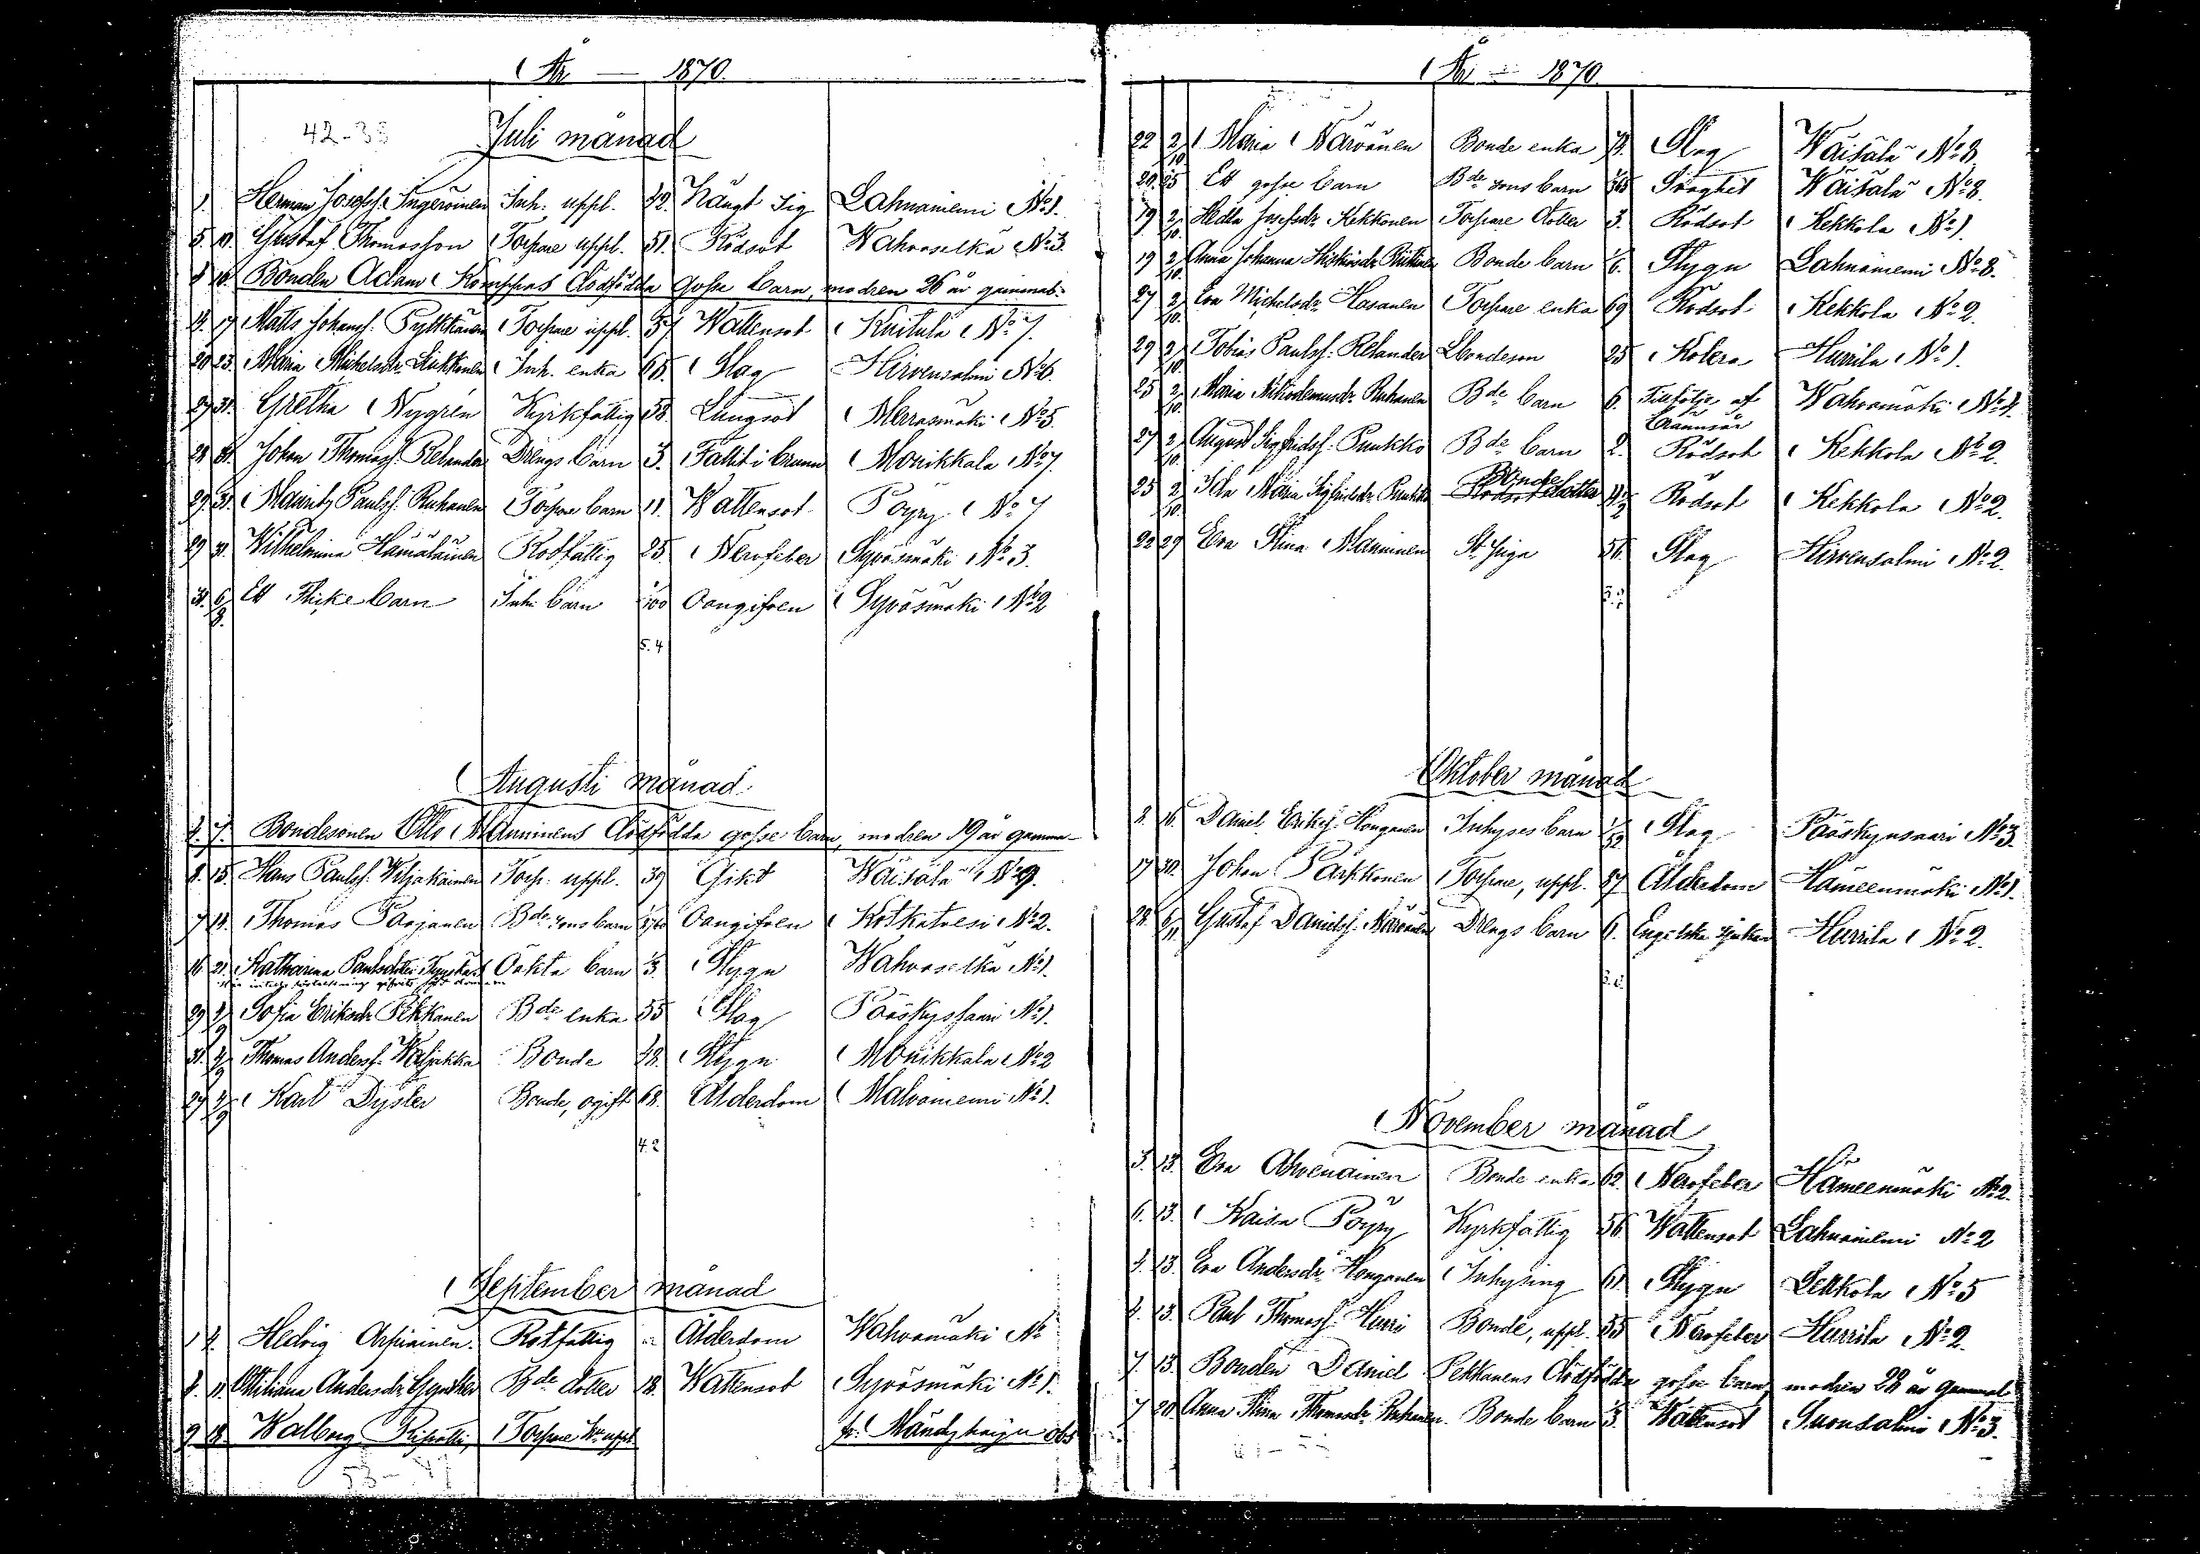 År — 1870.
42-33
Juli månad
1. Herman Josefss. Ingeroinen Inh. uppl. 42. Hängt sig Lahnaniemi No 1.
5. 10. Gustaf Thomasson Torpare uppl. 51. Rödsot Wahvaselkä No 3
8 10. Bonden Adam Komppas dödfödda gosse barn, modren 26 år gammal.
17. Matts Johanss. Pylkkänen Torpare uppl. 57 Wattensot Kuitula No 7.
20 23. Maria Michelsdr Liukkonen Inh. enka 65. Slag Hirvensalmi No 6.
27 31. Gretha Nygrén Kyrkfattig 58. Lungsot Merrasmäki No 5.
28 31. Johan Thomass. Relander Drengs barn 3. Fallit i brunn Monikkala No 7.
29 31. Mauritz Paulss. Ruhanen Torpare barn 11. Wattensot Pöyry No 7
29 31. Wilhelmina Hämäläinen Rotfattig 25. Nervfeber Syväsmäki No 3.
31. 6/8. Ett Flicke barn Inh. barn Oangifven Syväsmäki No 2
5. 4
Augusti månad.
7. Bondesonen Otto Manninens dödfödda gosse barn, modren 19 år gamma
8. 15. Hans Paulss. Wiljakainen Torp. uppl. 39 Gikt Wäisälä No 9.
7 14. Thomas Parjanen Bde sons barn Oangifven Kotkatvesi No 2.
16 21. Katharina Paulsdotter Oäkta barn Stygn Wahvaselkä No 1.
29 4/9 Sofia Eriksdr Pekkanen Bde enka 55 Slag Pääskynsaari No 1.
31. 4/9 Thomas Anderss. Waljakka Bonde 48. Stygn Monikkala No 2
27 4/9 Karl Dyster Bonde, ogift 68. Ålderdom Malvaniemi No 1.
4. 2
September månad
1 4. Hedvig Arpiainen. Rotfattig Ålderdom Wahvamäki No
8. 11. Ottiliana Andersdr Gynther Bde dotter 18. Wattensot Syväsmäki No 1.
9 18. Walborg Torpare uppl. fr. Mändyharju
År — 1870.
22 2/10 Maria Närvänen Bonde enka Slag Wäisälä No 8.
20. 25 Ett gosse barn Bde sons barn Svaghet Wäisälä No 8.
19 2/10. Hedda Josefsdr Kekkonen Torpare dotter 3. Rödsot Kekkola No 1.
19 2/10. Anna Johanna Bonde barn Stygn Lahnaniemi No 8.
27 2/10. Eva Michelsdr Hasanen Torpare enka 69 Rödsot Kekkola No 2.
29 2/10. Tobias Paulss. Relander Bondeson 25 Kolera Hurrila No 1.
25 2/10. Maria Nikodemusdr Ruhanen Bde barn 6. Tillfölje af brännsår Wahvamäki No 4.
27 2/10. August Sigfridss. Puukko Bde barn 2. Rödsot Kekkola No 2.
25 2/10. Ida Maria Sigfridsdr Bonde dotter Rödsot Kekkola No 2.
22 27 Eva Stina Manninen St. piga 56. Slag Hirvensalmi No 2.
Oktober månad
8. 16. Daniel Erikss. Honganen Inhyses barn Slag Pääskynsaari No 3.
17 30. Johan Parkkonen Torpare, uppl. 87 Ålderdom Hämeenmäki No 1.
28. 6/11. Gustaf Danielss. Närvänen Drengs barn 6. Engelska sjukan Hurrila No 2.
November månad
3. 13. Eva Ahvenainen Bonde enka 62. Nervfeber Hämeenmäki No 2.
6. 13. Kaisa Pöyry Kyrkfattig 56 Wattensot Lahnaniemi No 2
4. 13. Eva Andersdr Honganen Inhysing 61 Stygn Lelkkola No 5
4. 13. Paul Thomass. Hurri Bonde, uppl. 55 Nervfeber Hurrila No 2.
7. 13. Bonden Daniel Pekkanens dödfödda gosse barn, modren 28 år gammal
7 20. Anna Stina Thomasdr Ruhanen. Bonde barn Wattensot Suonsalmi No 3.